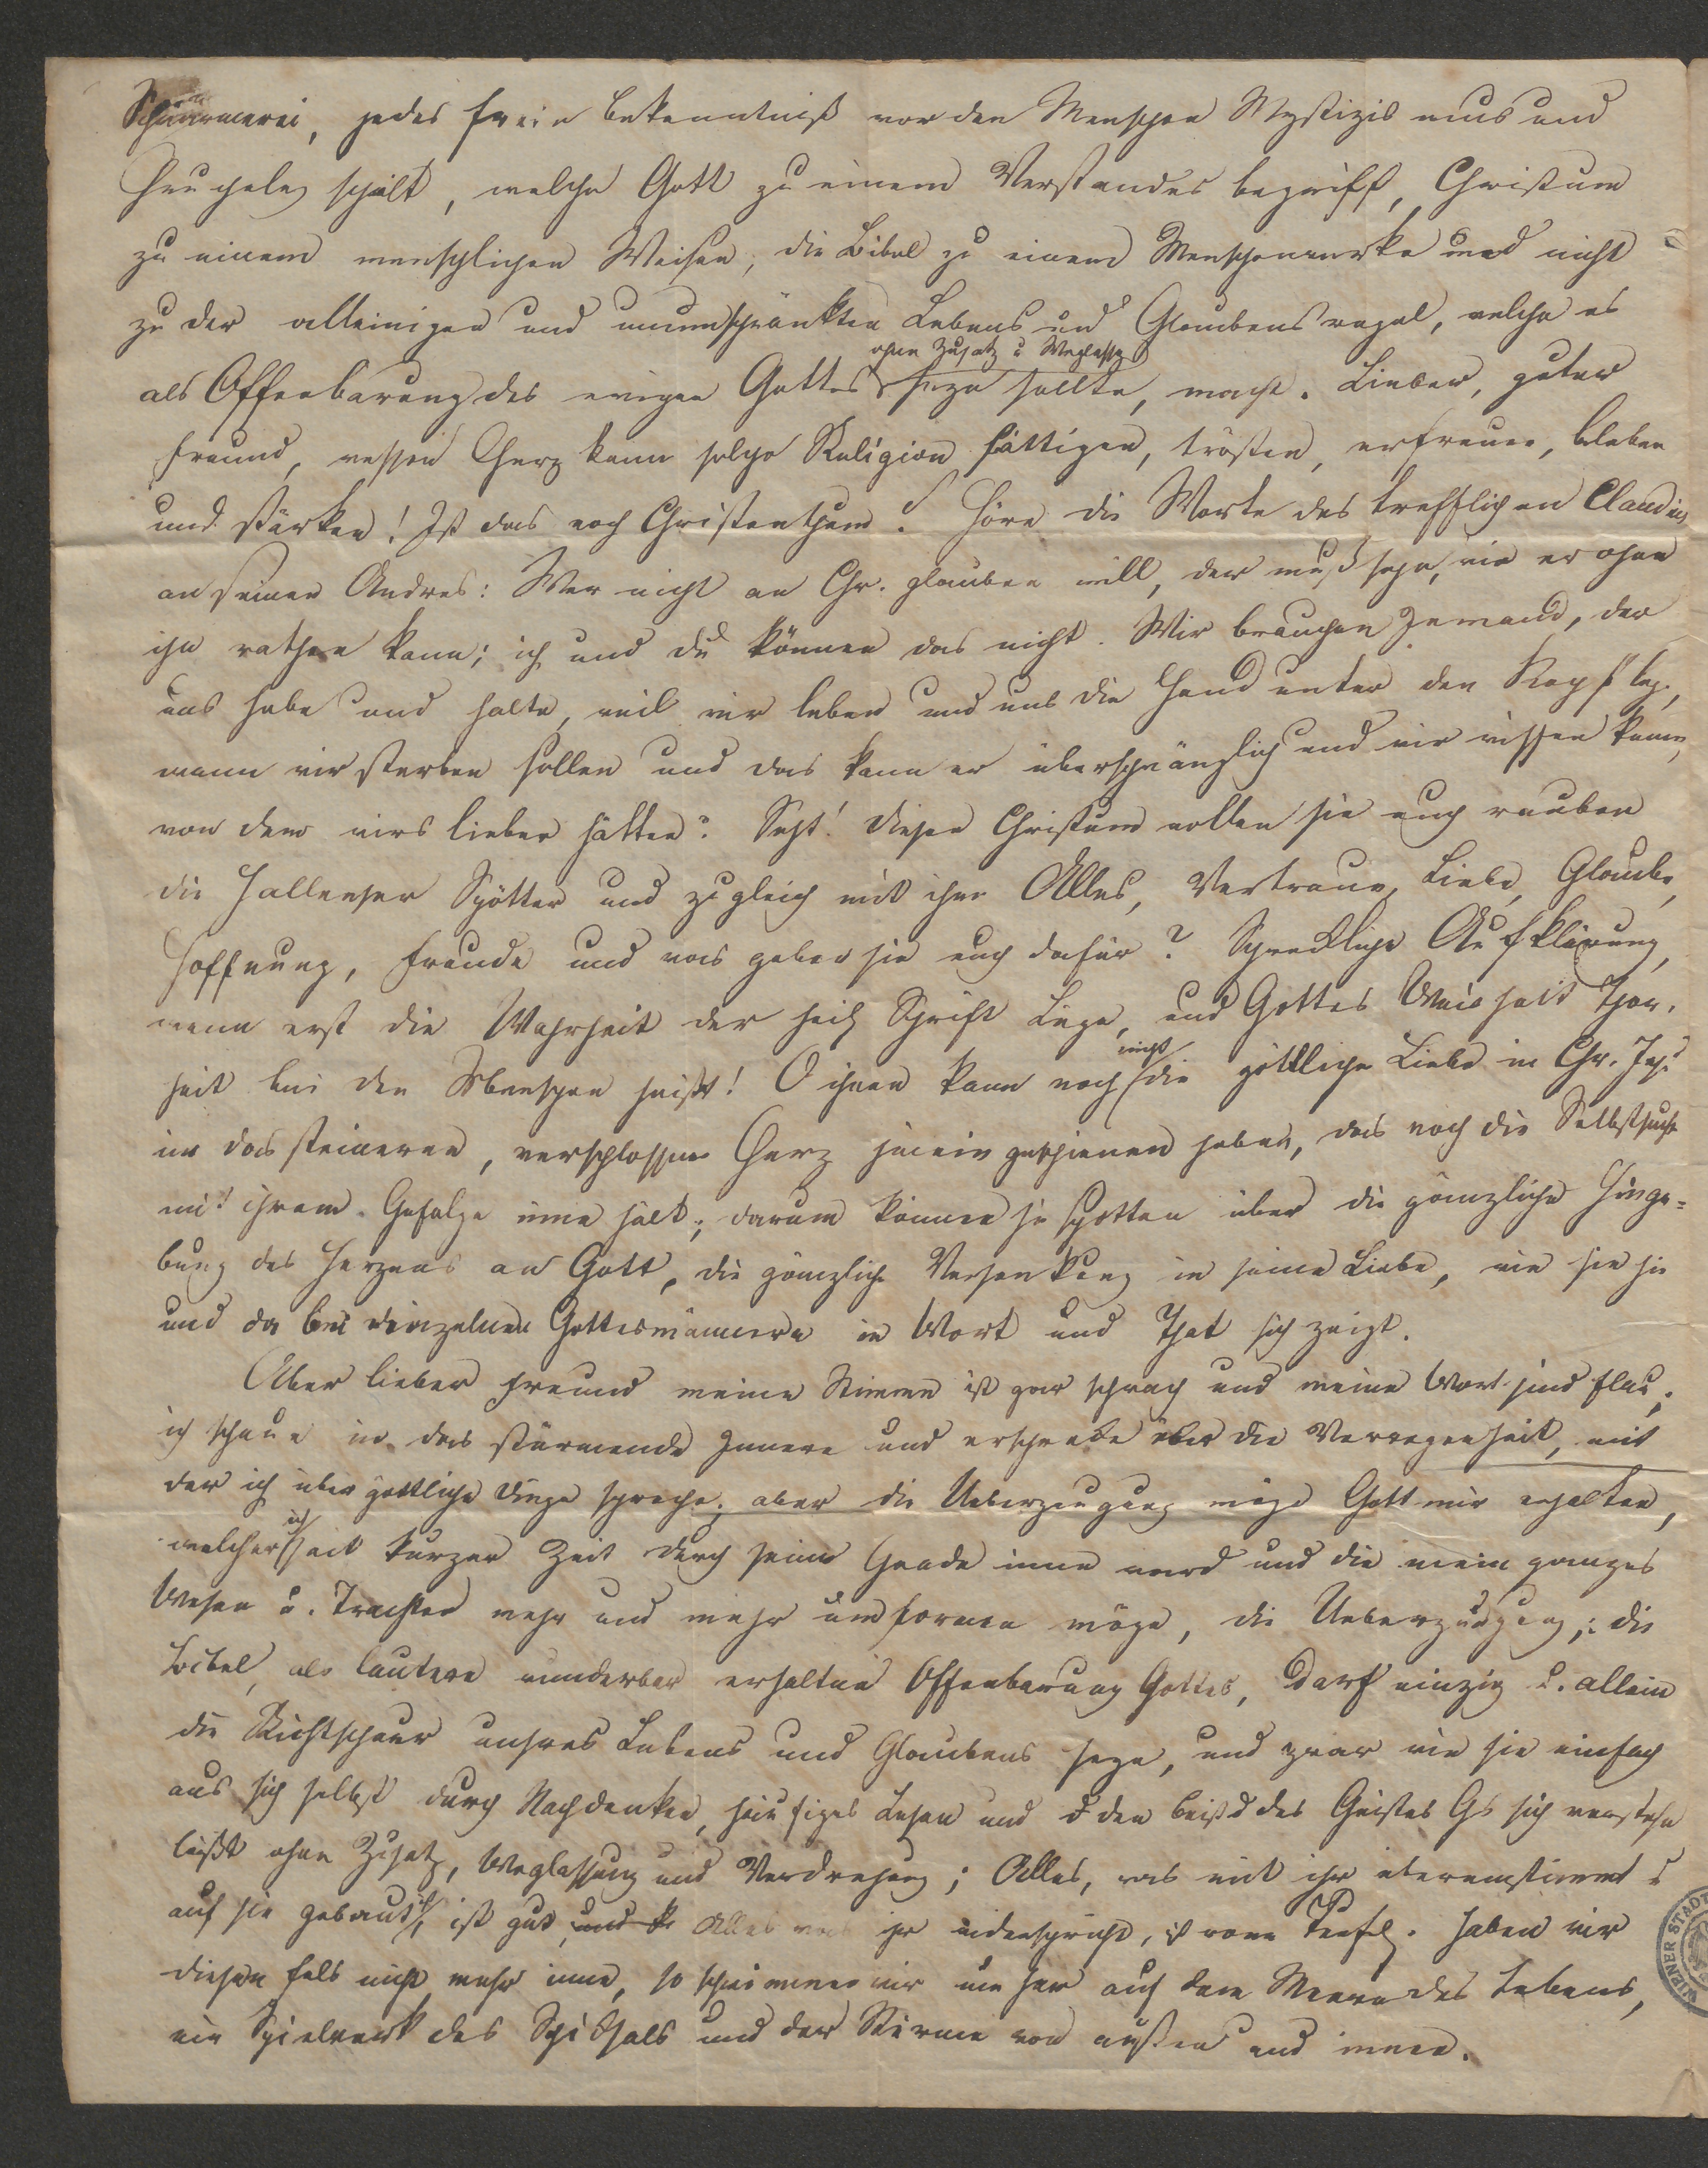 Schwärmerei, jedes freie Bekenntniß vor den Menschen Mystizismus und
Heucheley schilt, welche Gott zu einem Verstandesbegriff, Christum
zu einem menschlichen Weisen, die Bibel zu einem Menschenwerke und nicht
zu der alleinigen und unumschränkten Lebens und Glaubensregel, welche es
ohne Zusatz u Weglassg
als Offenbarung des ewigen Gottes seyn sollte, macht. Lieber, guter
Freund, wessen Herz kann solche Religion sättigen, trösten, erfreuen, beleben
und stärken! Ist das noch Christenthum? Höre die Worte des trefflichen Claudius
an seinen Andres: Wer nicht an Chr. glauben will, der muß sehn, wie er ohne
ihn rathen kann; ich und du können das nicht. Wir brauchen Jemand, der
uns hebe und halte, weil wir leben und uns die Hand unter den Kopf leg.,
wenn wir sterben sollen und das kann er überschwänglich und wir wissen kein.,
von dem wirs lieber hätten? Seht! diesen Christum wollen sie euch rauben
die Hallenser Spötter und zugleich mit ihm Alles, Vertrauen, Liebe, Glaube,
Hoffnung, Freude und was geben sie euch dafür? Schreckliche Aufklärung,
wenn erst die Wahrheit der heil Schrift Lüge, und Gottes Weisheit Thor,
nicht
heit bei den Menschen heißt! O ihnen kann noch die göttliche Liebe in Chr. Jes.
in das steinerne, verschlossene Herz hinein geschienen haben, das noch die Selbstsucht
mit ihrem Gefolge inne hält; darum können sie spotten über die gänzliche Hinge-
bung des Herzens an Gott, die gänzliche Versenkung in seine Liebe, wie sie hie
und da bei einzelnen Gottesmännern in Wort und That sich zeigt.
Aber lieber Freund meine Stimme ist gar schwach und meine Wort sind flau;
ich schaue in das stürmende Innere und erschrecke über die Verwegenheit, mit
der ich über göttliche Dinge spreche; aber die Ueberzeugung möge Gott mir erhalten,
ich
welcher seit kurzer Zeit durch seine Gnade inne ward und die mein ganzes
Wesen u. Trachten mehr und mehr umformen möge, die Ueberzeugung: die
Bibel, als lautere wunderbar erhaltne Offenbarung Gottes, darf einzig u. allein
die Richtschnur unsres Lebens und Glaubens seyn, und zwar wie sie einfach
aus sich selbst durch Nachdenken, häufiges Lesen und d den Beistd des Geistes Gs sich verstehn
läßt ohne Zusatz, Weglassung und Verdrehung; Alles, was mit ihr übereinstimmt u
auf sie gebaut ist, ist gut, und Alles was ihr widerspricht, ist vom Teufel. Haben wir
diesen Fels nicht mehr inne, so schwimmen wir umher auf dem Meere des Lebens,
ein Spielwerk des Schicksals und der Stürme von außen und innen.
WIENER STADT